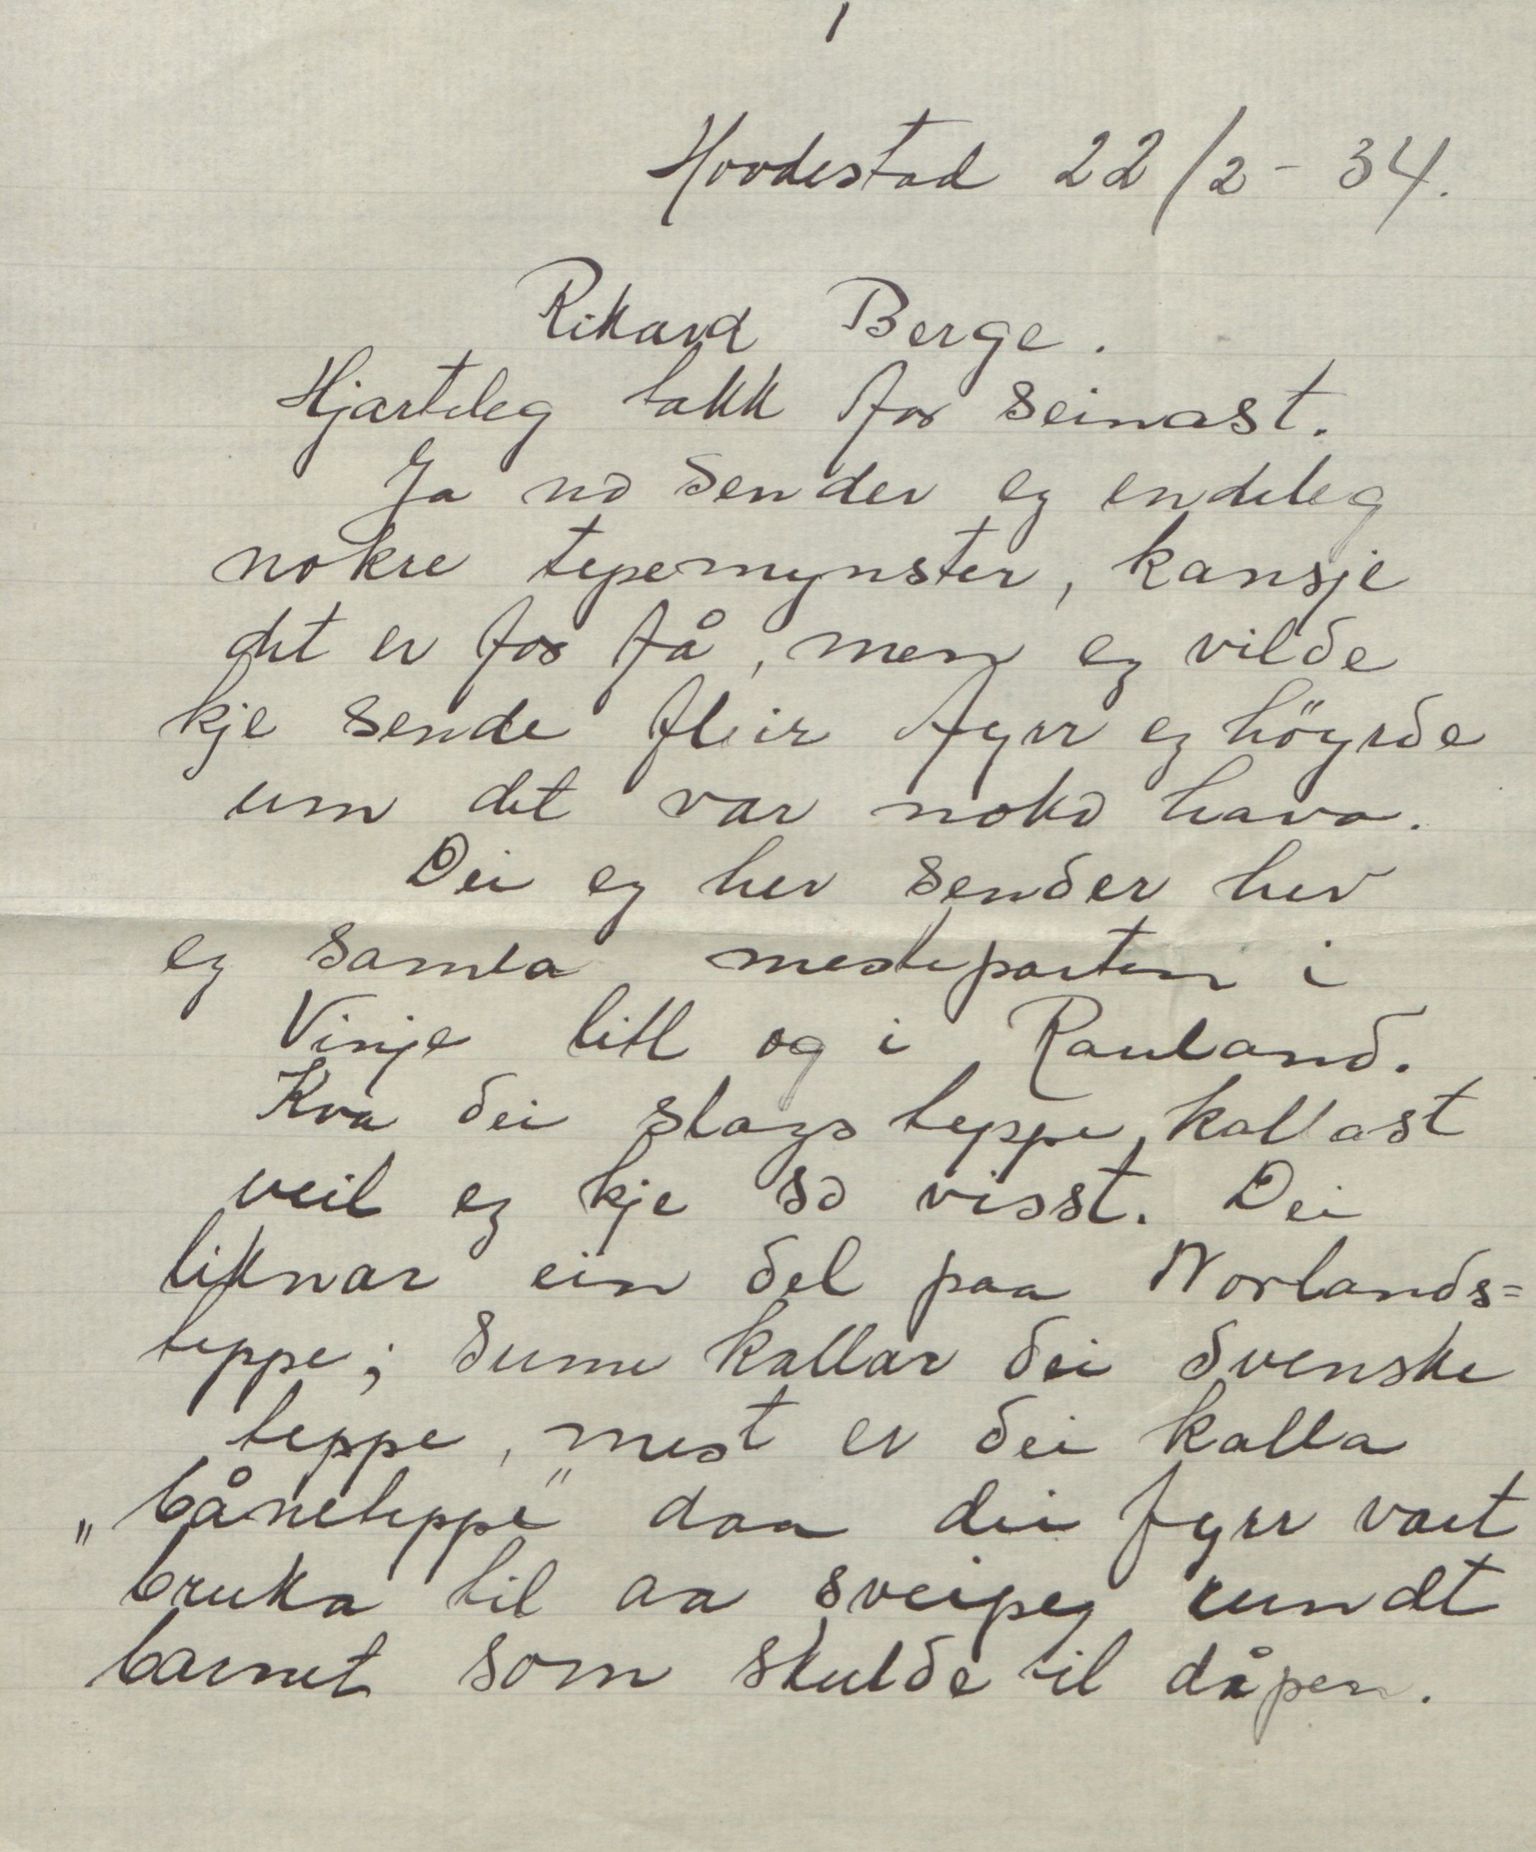 1
Hovdestad 22/2 - 34.
Rikard Berge.
Hjarteleg takk for seinast.
Ja no sender eg endeleg
nokre tepemynster, kansje
det er for få, men eg vilde
kje sende fleir fyrr eg höyrde
um det var noko hava.
Dei eg her sender hev
eg samla mesteparten i
Vinje litt og i Rauland.
Kva dei slags teppe kallast
veit eg kje so visst. Dei
liknar ein del paa Norlands=
teppe; sume kallar dei svenske
teppe, mest er dei kalla
„båneteppe" daa dei fyrr vart
bruka til aa sveipe rundt
barnet som skulde til dåpen.